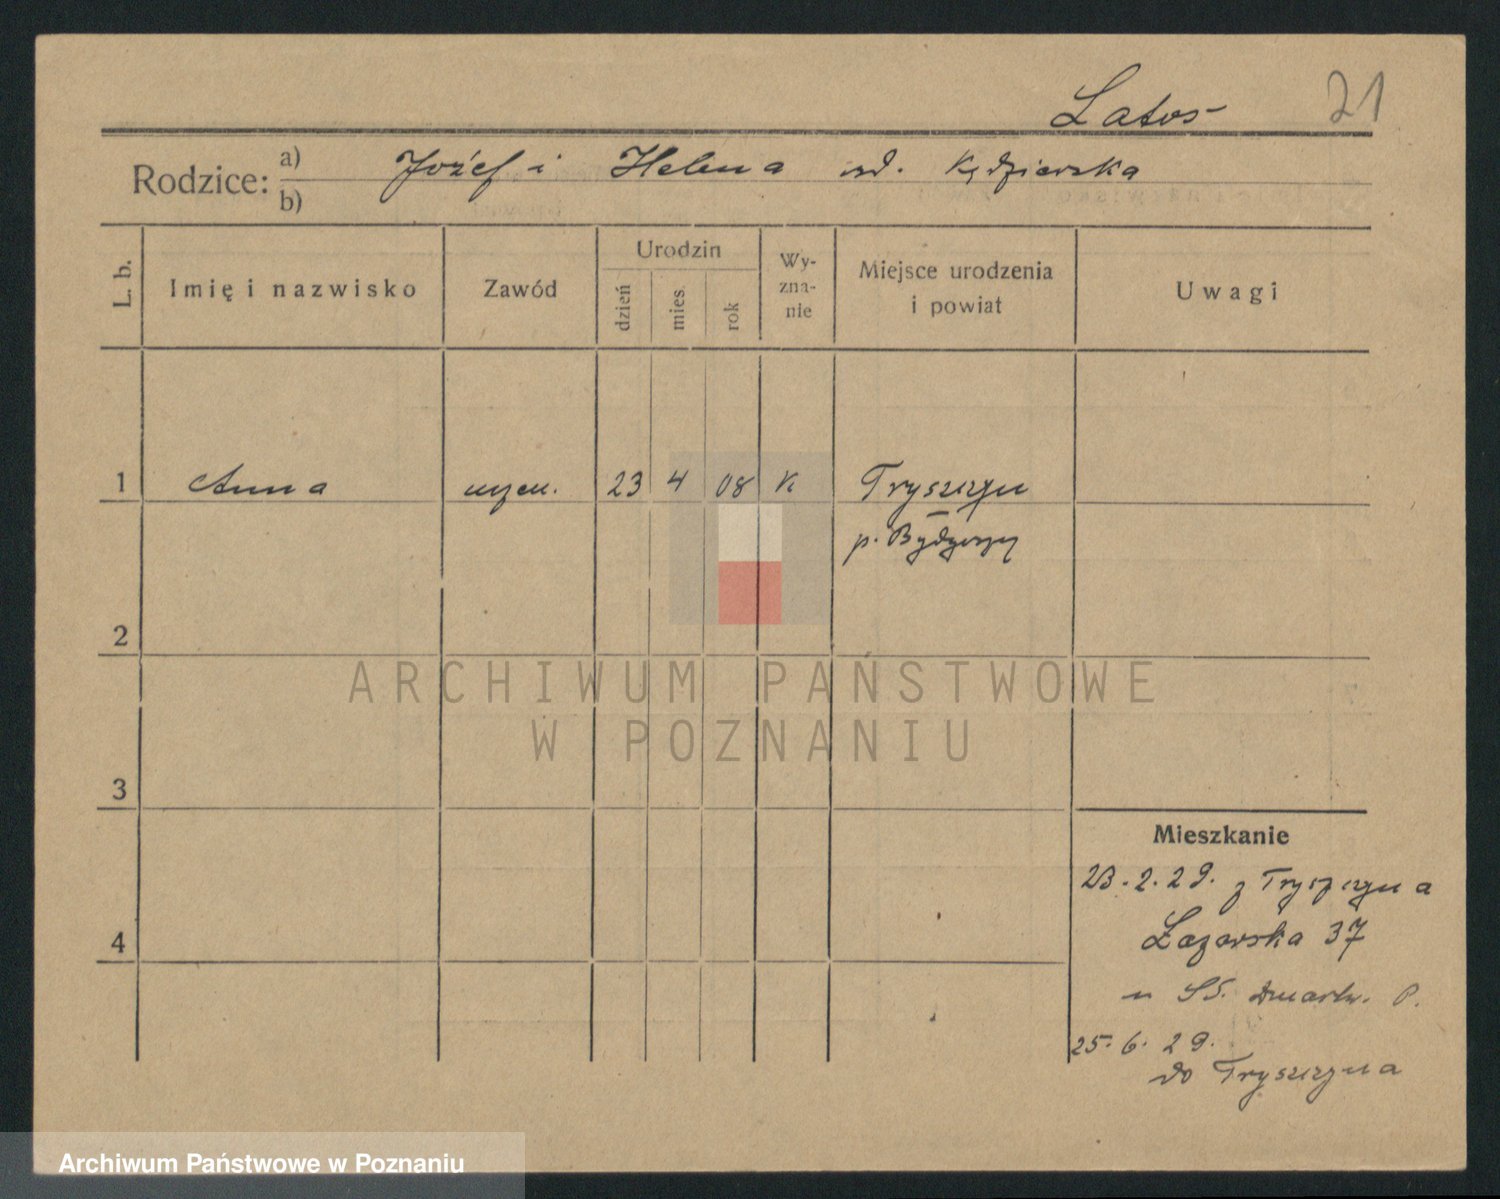 Latos 21
Rodzice: a) Józef i Helena ud. Kędzierska
b)
L. b. Imię i nazwisko Zawód Urodzin dzień mies. rok Wy-zna-nie Miejsce urodzenia i powiat Uwagi
1 Anna uczen. 23 4 08 K Tryszczyn
p. Bydgoszcz
2
ARCHIWUM PAŃSTWOWE
W POZNANIU
3
Mieszkanie
23.2.29. z Tryszczyna
4 Łazarska 37
u SS. Zmartw. P.
25.6.29.
do Tryszczyna
Archiwum Państwowe w Poznaniu